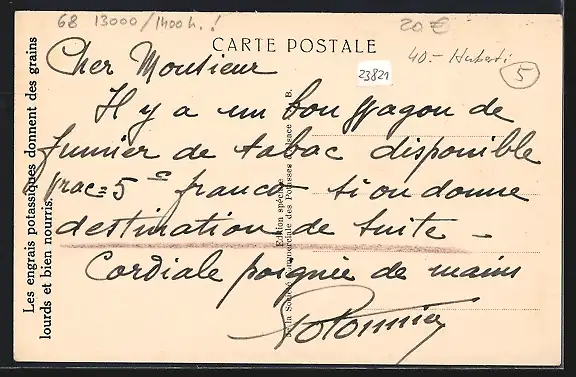 68 13000/1400h.!
20 €
CARTE POSTALE
40.-
23821
5
Cher Monsieur
Il y a un bon wagon de
fumier de tabac disponible
vrac = 5 c franco si on donne
destination de suite -
Cordiale poignée de mains
Les engrais potassiques donnent des grains
lourds et bien nourris.
Edition spéciale
de la Société Commerciale des Potasses d'Alsace B.